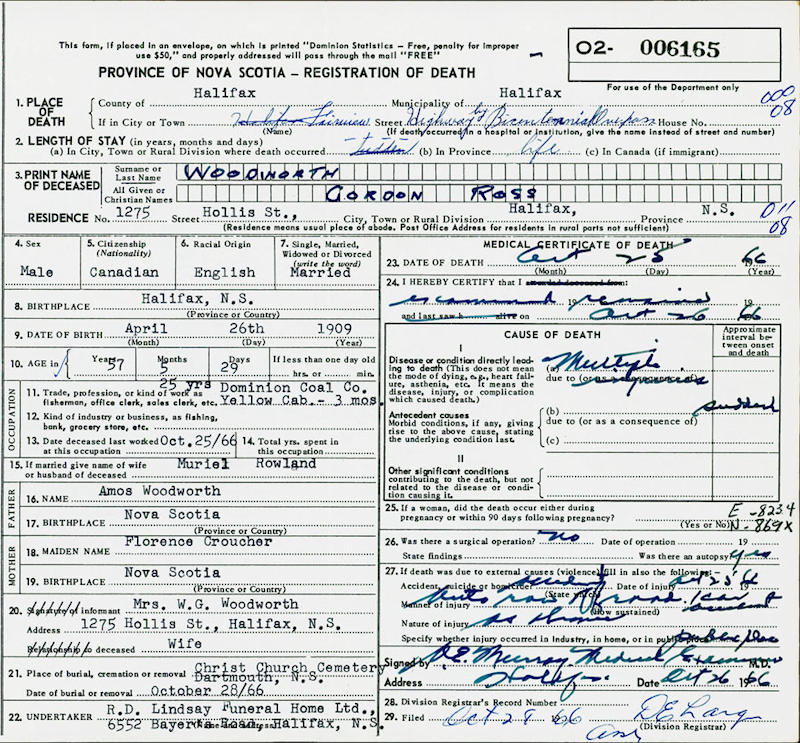 This form, if placed in an envelope, on which is printed "Dominion Statistics – Free, penalty for improper
use $50," and properly addressed will pass through the mail "FREE"
O2- 006165
PROVINCE OF NOVA SCOTIA – REGISTRATION OF DEATH
For use of the Department only
1. PLACE OF DEATH County of Halifax Municipality of Halifax 000
If in City or Town Halifax Fairview Street Highway by Bicentennial Overpass House No. 08
(Name) (If death occurred in a hospital or institution, give the name instead of street and number)
2. LENGTH OF STAY (in years, months and days)
(a) In City, Town or Rural Division where death occurred (b) In Province life (c) In Canada (if immigrant)
3. PRINT NAME OF DECEASED Surname or Last Name WOODWORTH
All Given or Christian Names GORDON ROSS
RESIDENCE No. 1275 Street Hollis St., City, Town or Rural Division Halifax, Province N.S. 011
(Residence means usual place of abode. Post Office Address for residents in rural parts not sufficient) 08
4. Sex 5. Citizenship (Nationality) 6. Racial Origin 7. Single, Married, Widowed or Divorced (write the word)
Male Canadian English Married
8. BIRTHPLACE Halifax, N.S.
(Province or Country)
9. DATE OF BIRTH April 26th 1909
(Month) (Day) (Year)
10. AGE in Years 57 Months 5 Days 29 If less than one day old hrs. or min.
OCCUPATION
11. Trade, profession, or kind of work as fisherman, office clerk, sales clerk, etc. 25 yrs Dominion Coal Co.
Yellow Cab.- 3 mos.
12. Kind of industry or business, as fishing, bank, grocery store, etc.
13. Date deceased last worked at this occupation Oct.25/66 14. Total yrs. spent in this occupation
15. If married give name of wife or husband of deceased Muriel Rowland
FATHER
16. NAME Amos Woodworth
17. BIRTHPLACE Nova Scotia
(Province or Country)
MOTHER
18. MAIDEN NAME Florence Croucher
19. BIRTHPLACE Nova Scotia
(Province or Country)
20. Signature of informant Mrs. W.G. Woodworth
Address 1275 Hollis St., Halifax, N.S.
Relationship to deceased Wife
21. Place of burial, cremation or removal Christ Church Cemetery
Dartmouth, N.S.
Date of burial or removal October 28/66
22. UNDERTAKER R.D. Lindsay Funeral Home Ltd.,
6552 Bayers Road, Halifax, N.S.
MEDICAL CERTIFICATE OF DEATH
23. DATE OF DEATH Oct 25 66
(Month) (Day) (Year)
24. I HEREBY CERTIFY that I attended deceased from:
examined 19 remains
and last saw h alive on Oct 26 66
CAUSE OF DEATH
Approximate interval between onset and death
I
Disease or condition directly leading to death (This does not mean the mode of dying, e.g., heart failure, asthenia, etc. It means the disease, injury, or complication which caused death.)
(a) Multiple
due to (or as a consequence of) injuries
Antecedent causes
Morbid conditions, if any, giving rise to the above cause, stating the underlying condition last.
(b) sudden
due to (or as a consequence of)
(c)
II
Other significant conditions
contributing to the death, but not related to the disease or condition causing it.
25. If a woman, did the death occur either during pregnancy or within 90 days following pregnancy? (Yes or No)
E -8234
N-869X
26. Was there a surgical operation? No Date of operation 19
State findings Was there an autopsy? yes
27. If death was due to external causes (violence) fill in also the following:-
Accident, suicide or homicide Date of injury Oct 25
(State which)
Manner of injury Auto ran off road / car accident
(How sustained)
Nature of injury as above
Specify whether injury occurred in industry, in home, or in public place
Signed by Murray Medical Examiner M.D.
Address Halifax Date Oct 26 1966
28. Division Registrar's Record Number
29. Filed Oct 28 66
(Division Registrar)